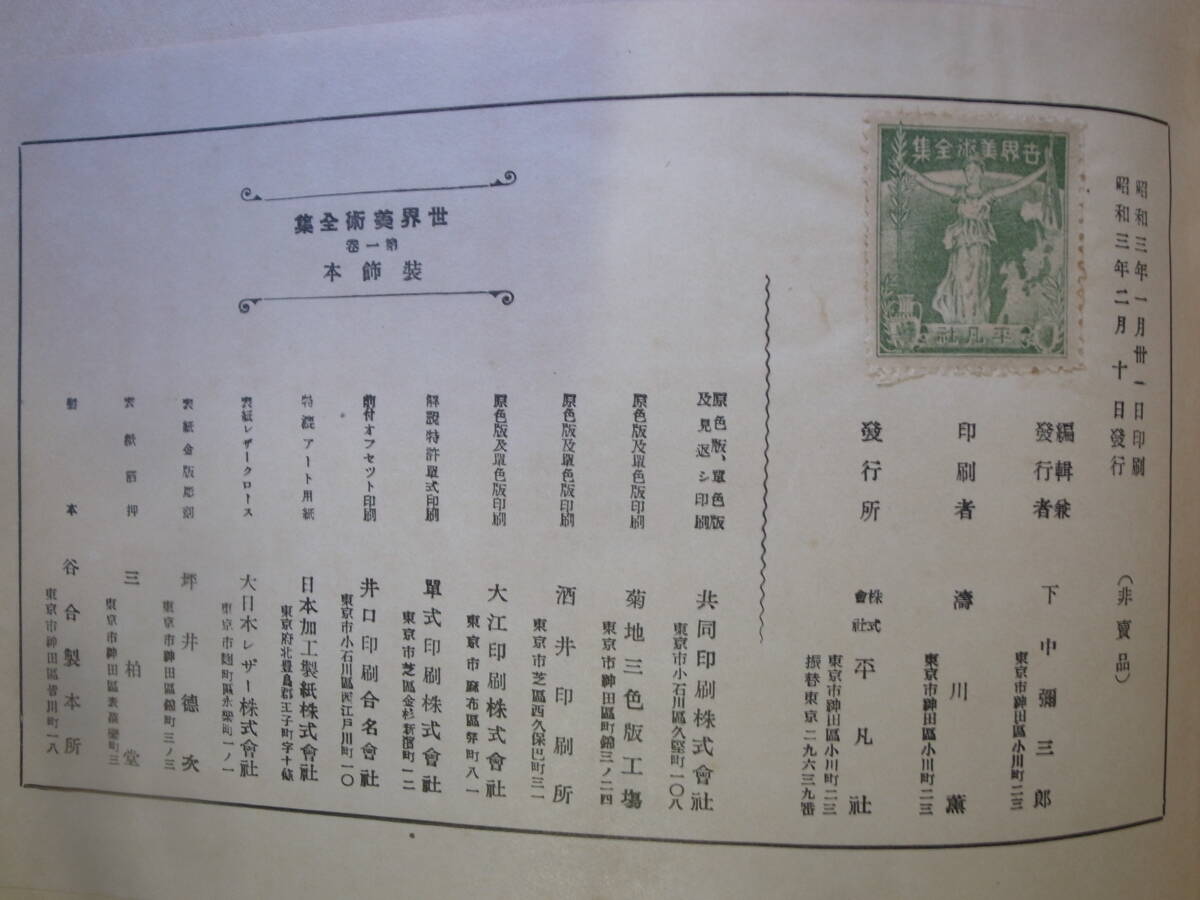 昭和三年一月卅一日印刷
昭和三年二月十日發行
(非賣品)
世界美術全集
平凡社
編輯兼
發行者
下中彌三郎
東京市神田區小川町二三
印刷者
濤川薫
東京市神田區小川町二三
發行所
株式
會社
平凡社
東京市神田區小川町二三
振替東京二九六三九番
世界美術全集
第一卷
裝飾本
原色版、單色版
及見返シ印刷
共同印刷株式會社
東京市小石川區久堅町一〇八
原色版及單色版印刷
菊地三色版工塲
東京市神田區町錦三ノ二四
原色版及單色版印刷
酒井印刷所
東京市芝區西久保巴町三一
原色版及單色版印刷
大江印刷株式會社
東京市麻布區笄町八一
解説特許單式印刷
單式印刷株式會社
東京市芝區金杉新濱町一二
前付オフセツト印刷
井口印刷合名會社
東京市小石川區西江戸川町一〇
特漉アート用紙
日本加工製紙株式會社
東京府北豊島郡王子町字十條
表紙レザークロース
大日本レザー株式會社
東京市麹町區永樂町一ノ一
表紙金版彫刻
坪井德次
東京市神田區錦町三ノ三
表紙箔押
三柏堂
東京市神田區表猿樂町三
製本
谷合製本所
東京市神田區皆川町一八